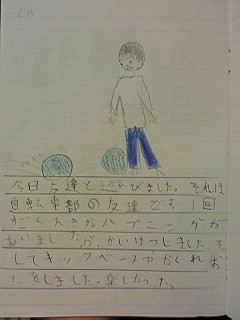 今日友達とあそびました。それは
自転車部の友達です 1回
すごく大きなハプニングが
いましたが、かいけつしました。そ
してキックベースやかくれお
にをしました。楽しかった。